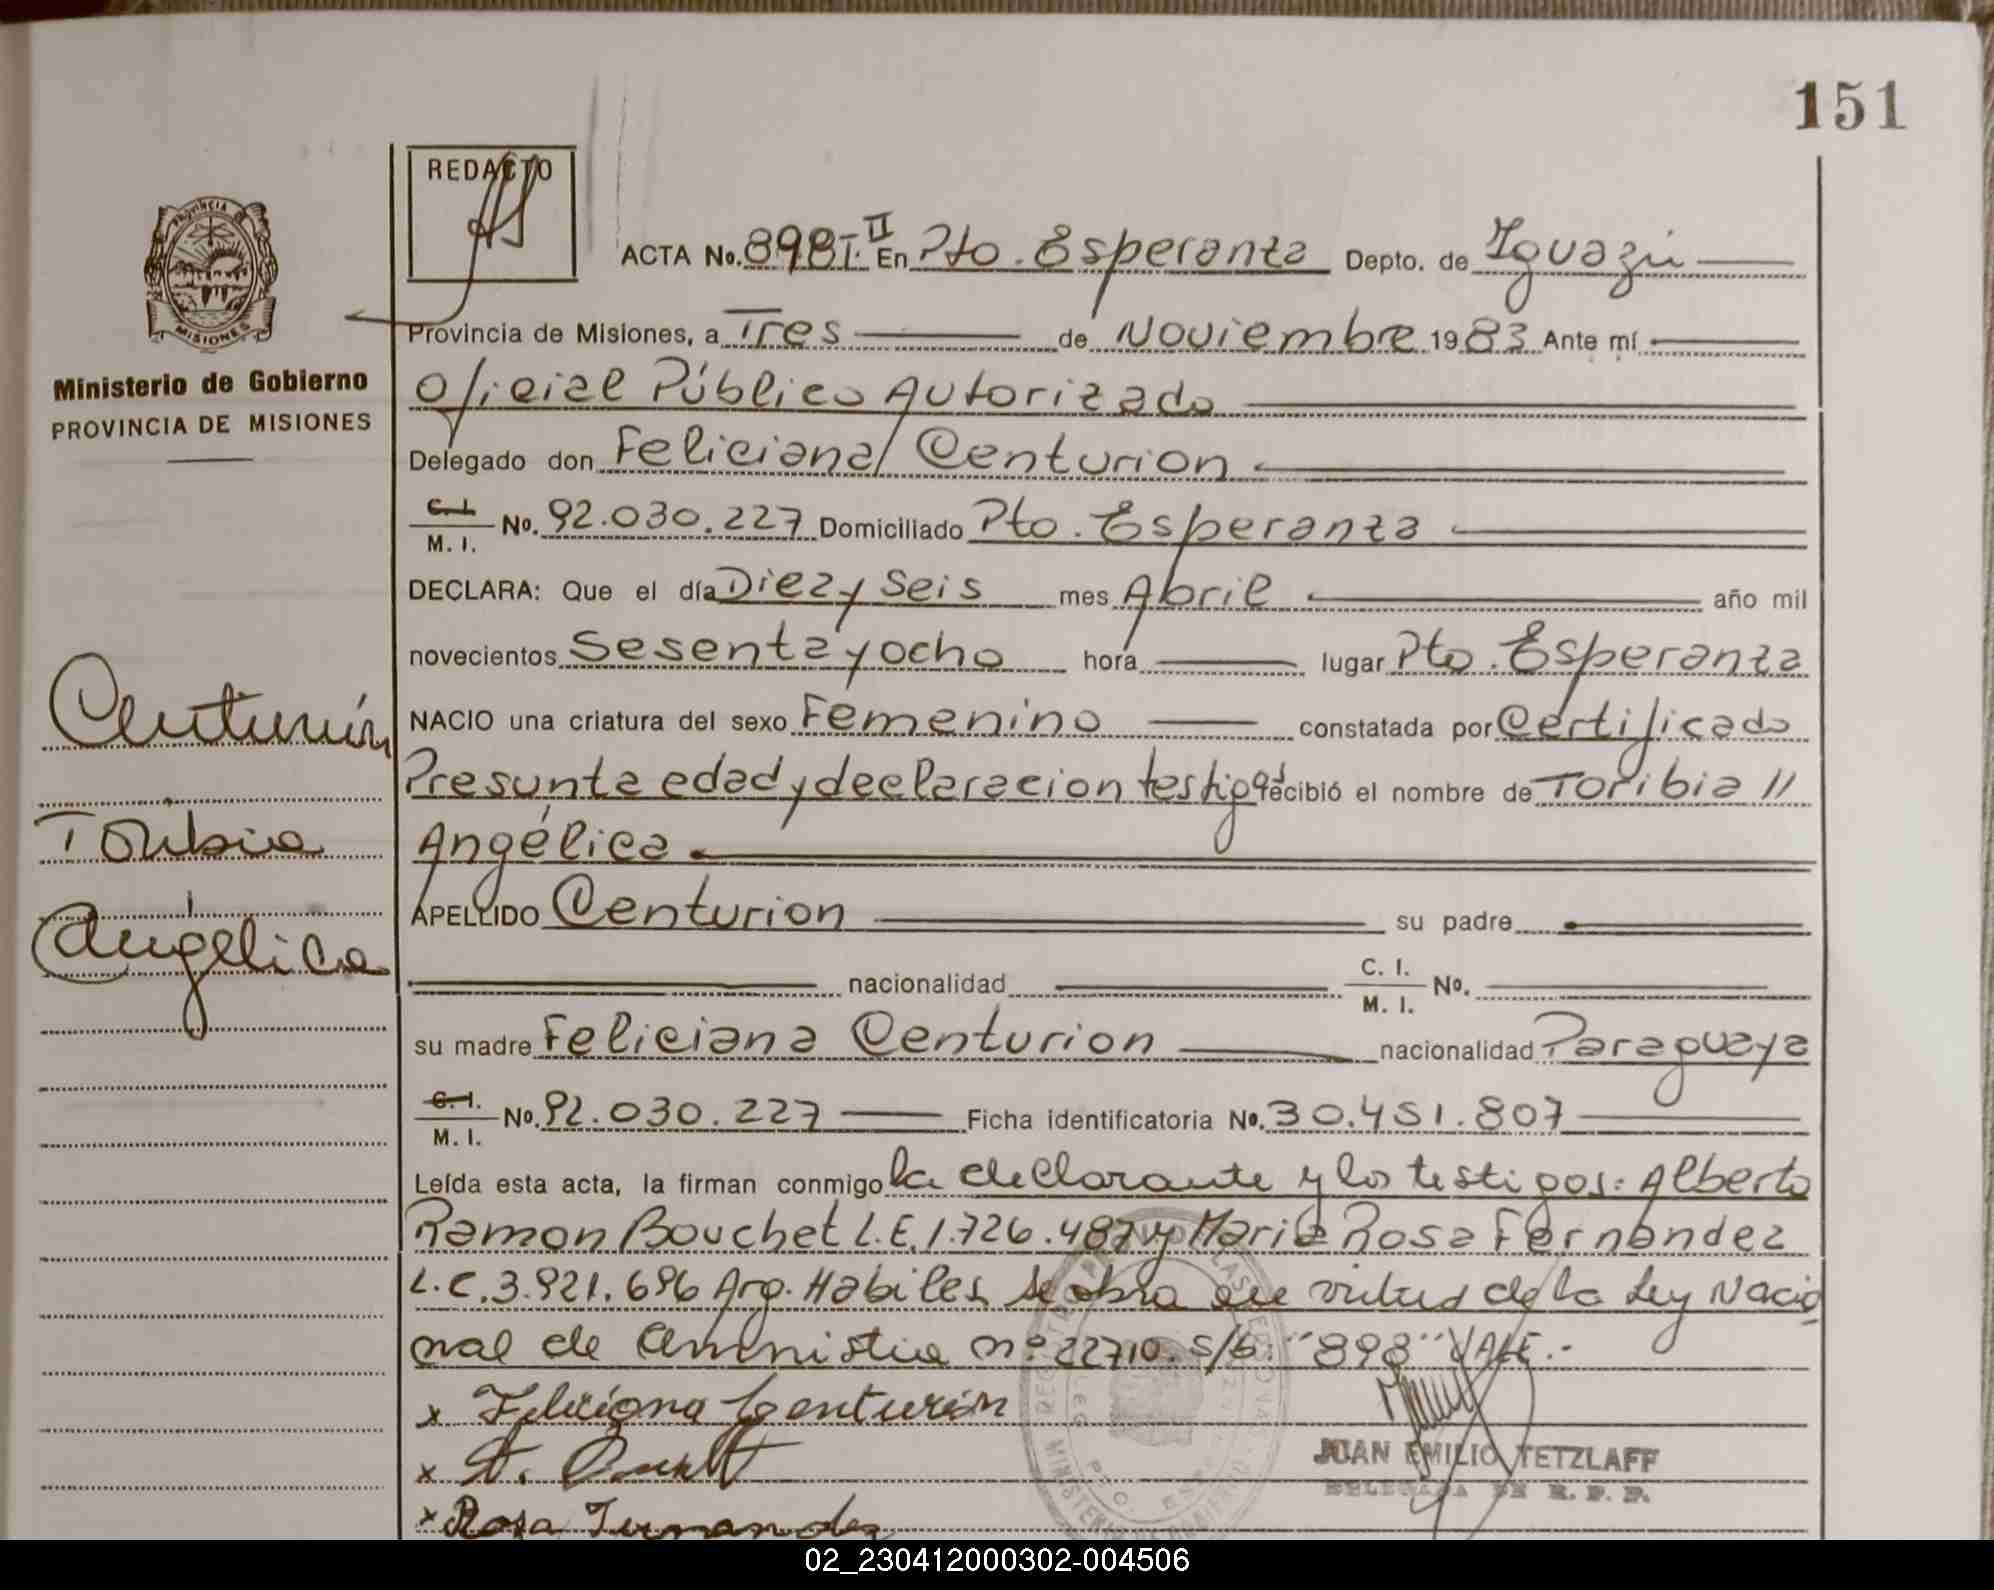 151
REDACTO
PROVINCIA DE
MISIONES
ACTA No. 898 T. II En Pto. Esperanza Depto. de Iguazú
Provincia de Misiones, a Tres de Noviembre 1983 Ante mí
Ministerio de Gobierno
PROVINCIA DE MISIONES
Oficial Público Autorizado
Delegado don Feliciana/ Centurion
C. I. M. I. No. 92.030.227 Domiciliado Pto. Esperanza
DECLARA: Que el día Diez y Seis mes Abril año mil
novecientos Sesenta y ocho hora lugar Pto. Esperanza
Centurión
NACIO una criatura del sexo Femenino constatada por Certificado
Presunta edad y declaracion testigos recibió el nombre de Toribia //
Toribia
Angélica
APELLIDO Centurion su padre
Angélica
nacionalidad C. I. M. I. No.
su madre Feliciana Centurion nacionalidad Paraguaya
C. I. M. I. No. 92.030.227 Ficha identificatoria No. 30.451.807
Leída esta acta, la firman conmigo la declarante y los testigos: Alberto
Ramon Bouchet L.E. 1.726.487 y Maria Rosa Fernandez
L.C. 3.921.696 Arg. Habiles se obra en virtud de la Ley Nacio
nal de Amnistia nº 22710. S/b: "898" VALE.-
x Feliciana Centurión
x A.
x Rosa Fernandez
JUAN EMILIO TETZLAFF
DE R. P. P.
02_230412000302-004506